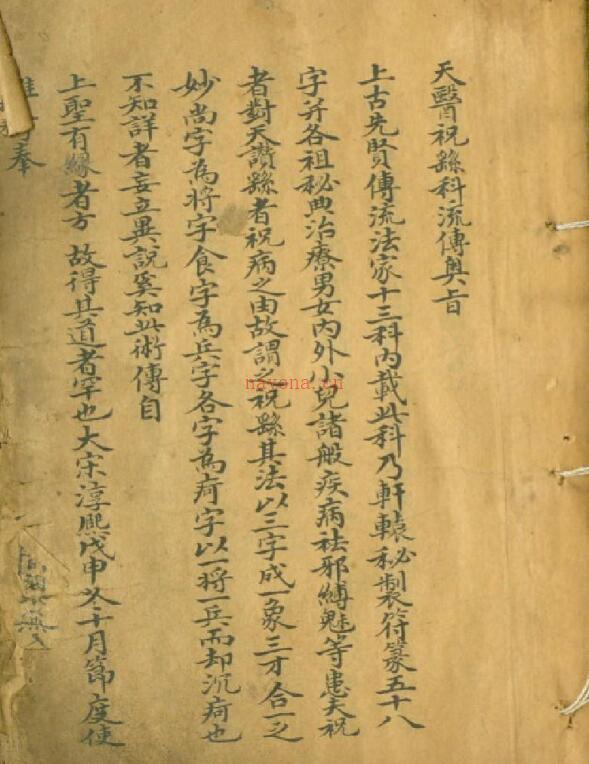 天醫祝繇科流傳奧旨
上古先賢傳流法家十三科內載此科乃軒轅秘製符篆五十八
字并各祖秘典治療男女內外小兒諸般疾病祛邪縛魅等患夫祝
者對天讚繇者祝病之由故謂之祝繇其法以三字成一象三才合一之
妙尚字為將字食字為兵字各字為疴字以一將一兵而却沉疴也
不知詳者妄立異說奚知此術傳自
上聖有緣者方故得其道者罕也大宋淳熙戊申冬十月節度使
奉
nayona.cn